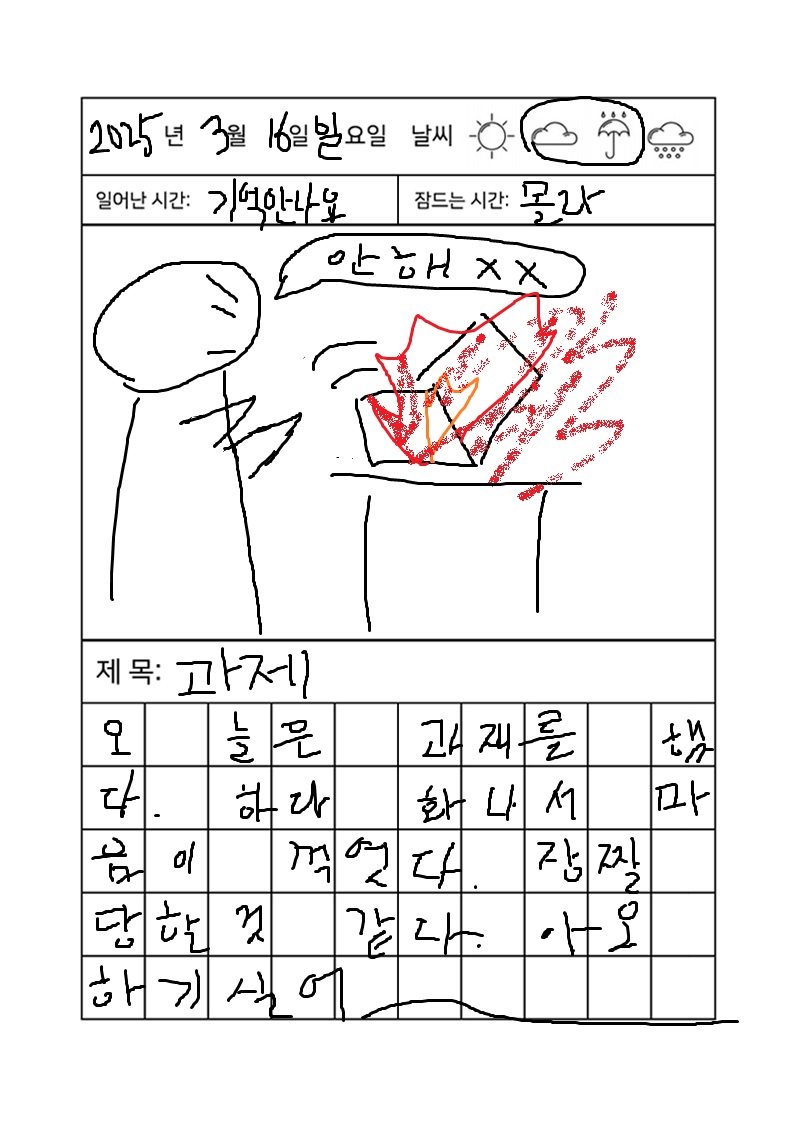 2025년 3월 16일 일요일 날씨
일어난 시간: 기억안나요 잠드는 시간: 몰라
안해 XX
제 목: 과제
오 늘은 과재를 했
다. 하다 화나서 마
음이 꺾였다. 잠짤
당할것 같다. 아오
하기싫어